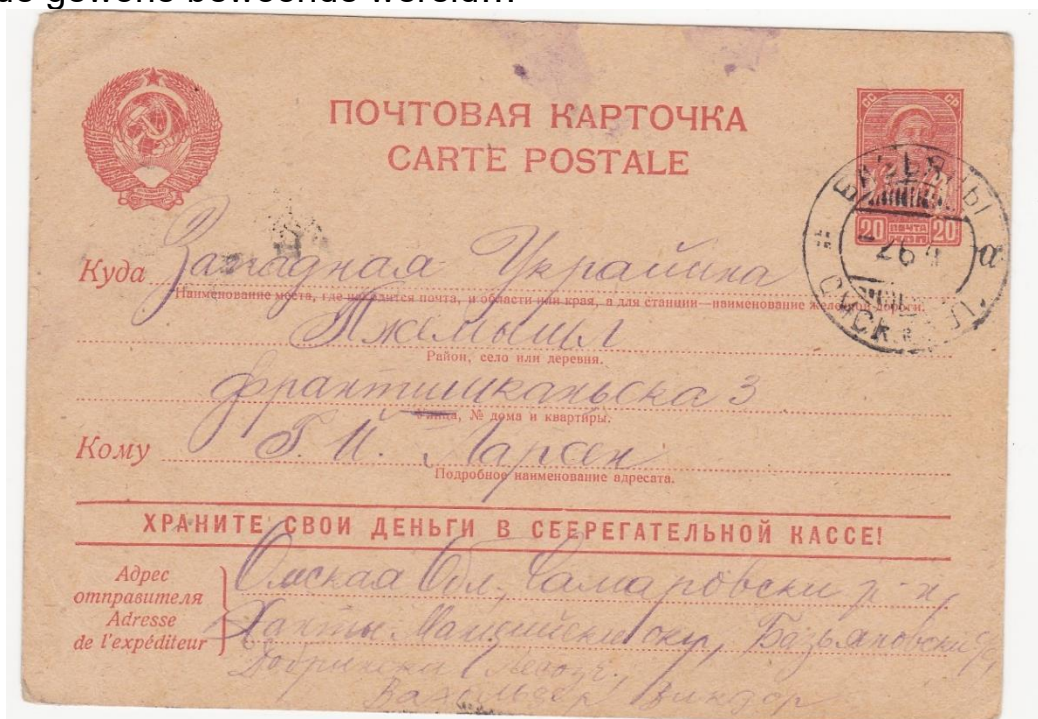 ПОЧТОВАЯ КАРТОЧКА
CARTE POSTALE
СС СР
20 ПОЧТА 20
Куда Западная Украйина
Наименование места, где находится почта, и области или края, а для станции—наименование железной дороги.
Пжемышл
Район, село или деревня.
франтишканьска 3
Улица, № дома и квартиры.
Кому Г. И. Ларсен
Подробное наименование адресата.
ХРАНИТЕ СВОИ ДЕНЬГИ В СБЕРЕГАТЕЛЬНОЙ КАССЕ!
Адрес отправителя
Adresse de l'expéditeur
Омская Обл, Самаровски р-н,
Ханты Мансийские окр,
Виктор